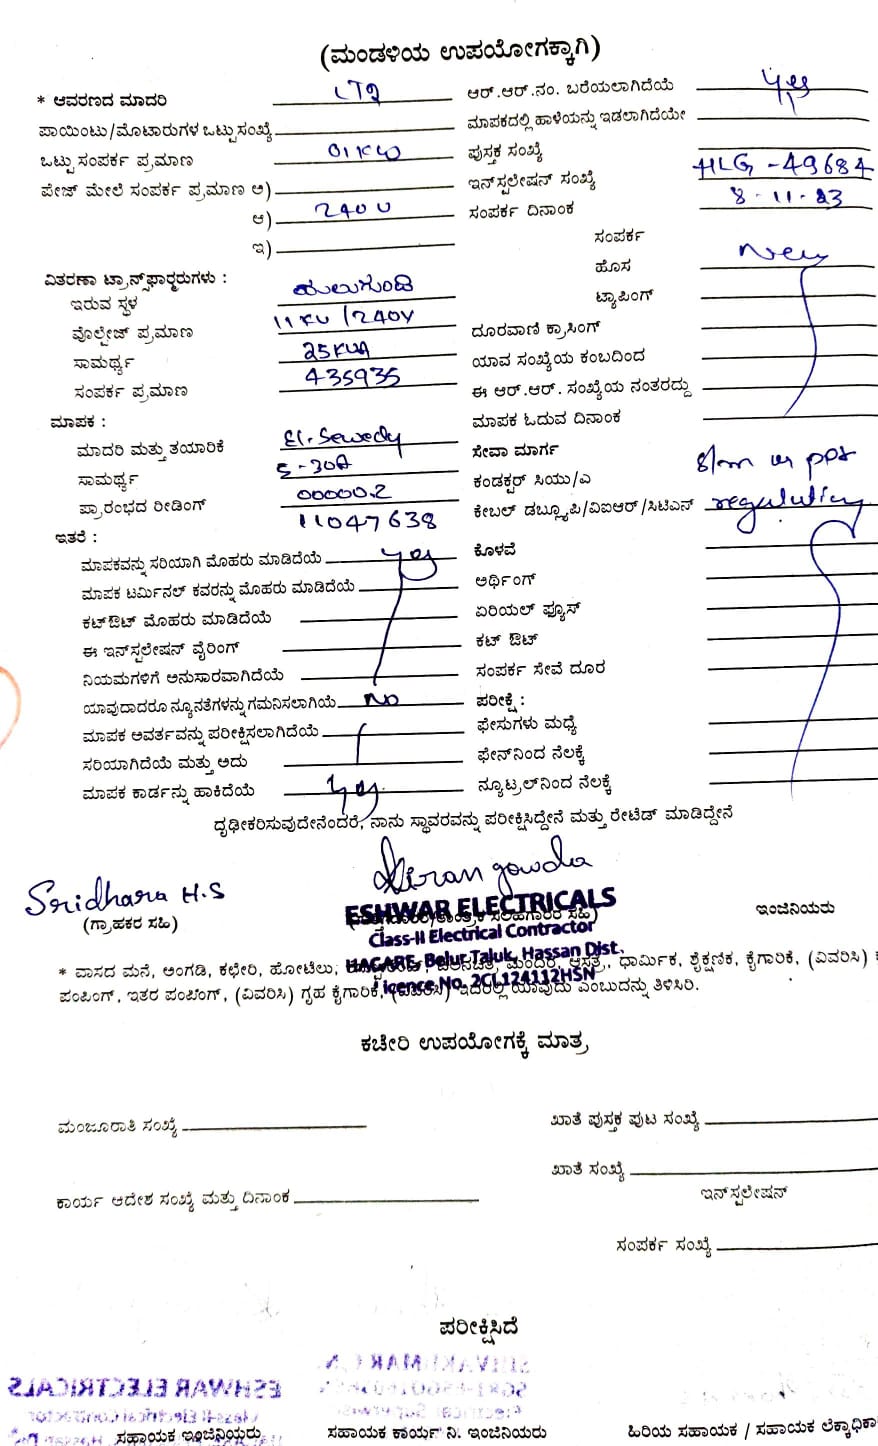 (ಮಂಡಳಿಯ ಉಪಯೋಗಕ್ಕಾಗಿ)
* ಆವರಣದ ಮಾದರಿ
ಪಾಯಿಂಟು/ಮೊಟಾರುಗಳ ಒಟ್ಟುಸಂಖ್ಯೆ
ಒಟ್ಟು ಸಂಪರ್ಕ ಪ್ರಮಾಣ 01KW
ಪೇಜ್ ಮೇಲೆ ಸಂಪರ್ಕ ಪ್ರಮಾಣ ಅ)
ಆ) 240 V
ಇ)
ವಿತರಣಾ ಟ್ರಾನ್ಸ್‌ಫಾರ್‍ಮರುಗಳು :
ಇರುವ ಸ್ಥಳ ಹಲುಗುಂಡಿ
ವೊಲ್ಟೇಜ್ ಪ್ರಮಾಣ 11KV/240V
ಸಾಮರ್ಥ್ಯ 25KVA
ಸಂಪರ್ಕ ಪ್ರಮಾಣ 435935
ಮಾಪಕ :
ಮಾದರಿ ಮತ್ತು ತಯಾರಿಕೆ El. Sewedy
ಸಾಮರ್ಥ್ಯ 5-30A
ಪ್ರಾರಂಭದ ರೀಡಿಂಗ್ 00000.2
11047638
ಇತರೆ :
ಮಾಪಕವನ್ನು ಸರಿಯಾಗಿ ಮೊಹರು ಮಾಡಿದೆಯೆ yes
ಮಾಪಕ ಟರ್ಮಿನಲ್ ಕವರನ್ನು ಮೊಹರು ಮಾಡಿದೆಯೆ
ಕಟ್‌ಔಟ್ ಮೊಹರು ಮಾಡಿದೆಯೆ
ಈ ಇನ್‌ಸ್ಪಲೇಷನ್ ವೈರಿಂಗ್
ನಿಯಮಗಳಿಗೆ ಅನುಸಾರವಾಗಿದೆಯೆ
ಯಾವುದಾದರೂ ನ್ಯೂನತೆಗಳನ್ನು ಗಮನಿಸಲಾಗಿಯೆ No
ಮಾಪಕ ಆವರ್ತವನ್ನು ಪರೀಕ್ಷಿಸಲಾಗಿದೆಯೆ
ಸರಿಯಾಗಿದೆಯೆ ಮತ್ತು ಅದು
ಮಾಪಕ ಕಾರ್ಡನ್ನು ಹಾಕಿದೆಯೆ yes
ಆರ್.ಆರ್.ನಂ. ಬರೆಯಲಾಗಿದೆಯೆ yes
ಮಾಪಕದಲ್ಲಿ ಹಾಳೆಯನ್ನು ಇಡಲಾಗಿದೆಯೇ
ಪುಸ್ತಕ ಸಂಖ್ಯೆ
ಇನ್‌ಸ್ಪಲೇಷನ್ ಸಂಖ್ಯೆ HLG -49684
ಸಂಪರ್ಕ ದಿನಾಂಕ 8-11-23
ಸಂಪರ್ಕ
ಹೊಸ New
ಟ್ಯಾಪಿಂಗ್
ದೂರವಾಣಿ ಕ್ರಾಸಿಂಗ್
ಯಾವ ಸಂಖ್ಯೆಯ ಕಂಬದಿಂದ
ಈ ಆರ್.ಆರ್. ಸಂಖ್ಯೆಯ ನಂತರದ್ದು
ಮಾಪಕ ಓದುವ ದಿನಾಂಕ
ಸೇವಾ ಮಾರ್ಗ
ಕಂಡಕ್ಟರ್ ಸಿಯು/ಎ
ಕೇಬಲ್ ಡಬ್ಲ್ಯೂಪಿ/ವಿಐಆರ್/ಸಿಟಿಎಸ್
ಕೊಳವೆ
ಅರ್ಥಿಂಗ್
ಏರಿಯಲ್ ಫ್ಯೂಸ್
ಕಟ್ ಔಟ್
ಸಂಪರ್ಕ ಸೇವೆ ದೂರ
ಪರೀಕ್ಷೆ :
ಫೇಸುಗಳು ಮಧ್ಯೆ
ಫೇಸ್‌ನಿಂದ ನೆಲಕ್ಕೆ
ನ್ಯೂಟ್ರಲ್‌ನಿಂದ ನೆಲಕ್ಕೆ
ದೃಢೀಕರಿಸುವುದೇನೆಂದರೆ, ನಾನು ಸ್ಥಾವರವನ್ನು ಪರೀಕ್ಷಿಸಿದ್ದೇನೆ ಮತ್ತು ರೇಟೆಡ್ ಮಾಡಿದ್ದೇನೆ
Sridhara H.S
(ಗ್ರಾಹಕರ ಸಹಿ)
Kiran gowda
ESHWAR ELECTRICALS
Class-II Electrical Contractor
HAGARE, Belur Taluk, Hassan Dist.
Licence No. 2CL124112HSN
ಇಂಜಿನಿಯರು
* ವಾಸದ ಮನೆ, ಅಂಗಡಿ, ಕಛೇರಿ, ಹೋಟೆಲು, ಆಸ್ಪತ್ರೆ, ಧಾರ್ಮಿಕ, ಶೈಕ್ಷಣಿಕ, ಕೈಗಾರಿಕೆ, (ವಿವರಿಸಿ)
ಪಂಪಿಂಗ್, ಇತರ ಪಂಪಿಂಗ್, (ವಿವರಿಸಿ) ಗೃಹ ಕೈಗಾರಿಕೆ, ಇದರಲ್ಲಿ ಯಾವುದು ಎಂಬುದನ್ನು ತಿಳಿಸಿರಿ.
ಕಚೇರಿ ಉಪಯೋಗಕ್ಕೆ ಮಾತ್ರ
ಮಂಜೂರಾತಿ ಸಂಖ್ಯೆ
ಖಾತೆ ಪುಸ್ತಕ ಪುಟ ಸಂಖ್ಯೆ
ಖಾತೆ ಸಂಖ್ಯೆ
ಕಾರ್ಯ ಆದೇಶ ಸಂಖ್ಯೆ ಮತ್ತು ದಿನಾಂಕ
ಇನ್‌ಸ್ಪಲೇಷನ್
ಸಂಪರ್ಕ ಸಂಖ್ಯೆ
ಪರೀಕ್ಷಿಸಿದೆ
ESHWAR ELECTRICALS
Class-II Electrical Contractor
ಸಹಾಯಕ ಇಂಜಿನಿಯರು
ಸಹಾಯಕ ಕಾರ್ಯ ನಿ. ಇಂಜಿನಿಯರು
ಹಿರಿಯ ಸಹಾಯಕ / ಸಹಾಯಕ ಲೆಕ್ಕಾಧಿಕಾ